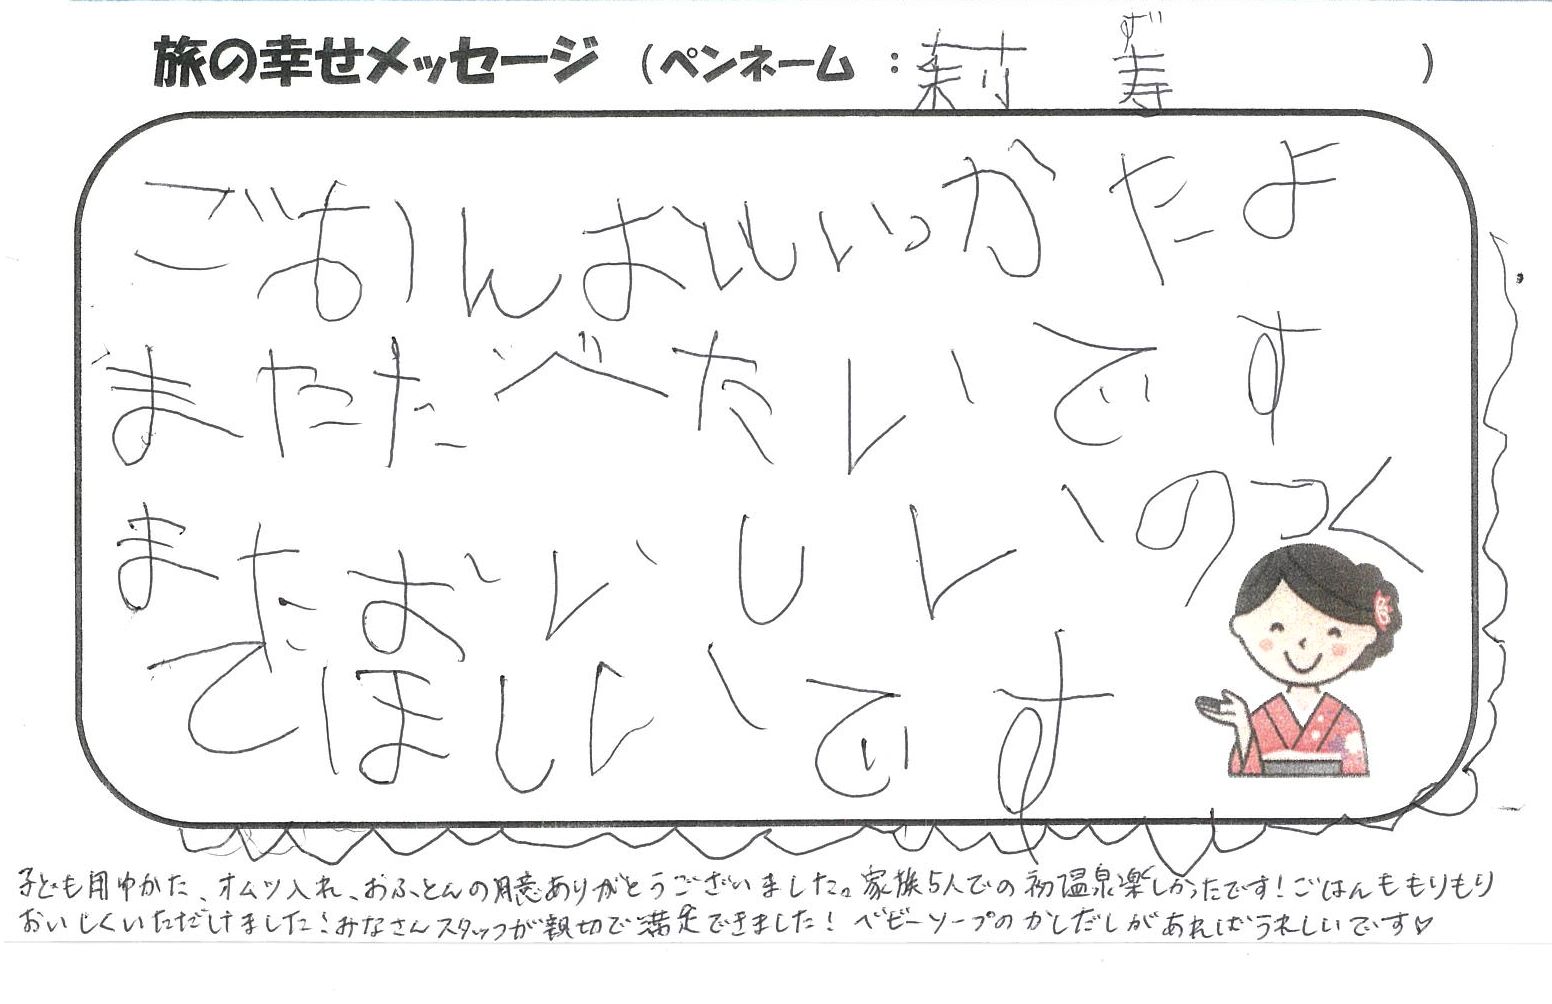 旅の幸せメッセージ (ペンネーム : 莉 寿 ず )
ごはんおいしいかったよ
またたべたいです
またおいしいのつく
てほしいです
子ども用ゆかた、オムツ入れ、おふとんの用意ありがとうございました。家族5人での初温泉楽しかったです!ごはんももりもり
おいしくいただけました!みなさんスタッフが親切で満足できました! ベビーソープのかしだしがあればうれしいです♡